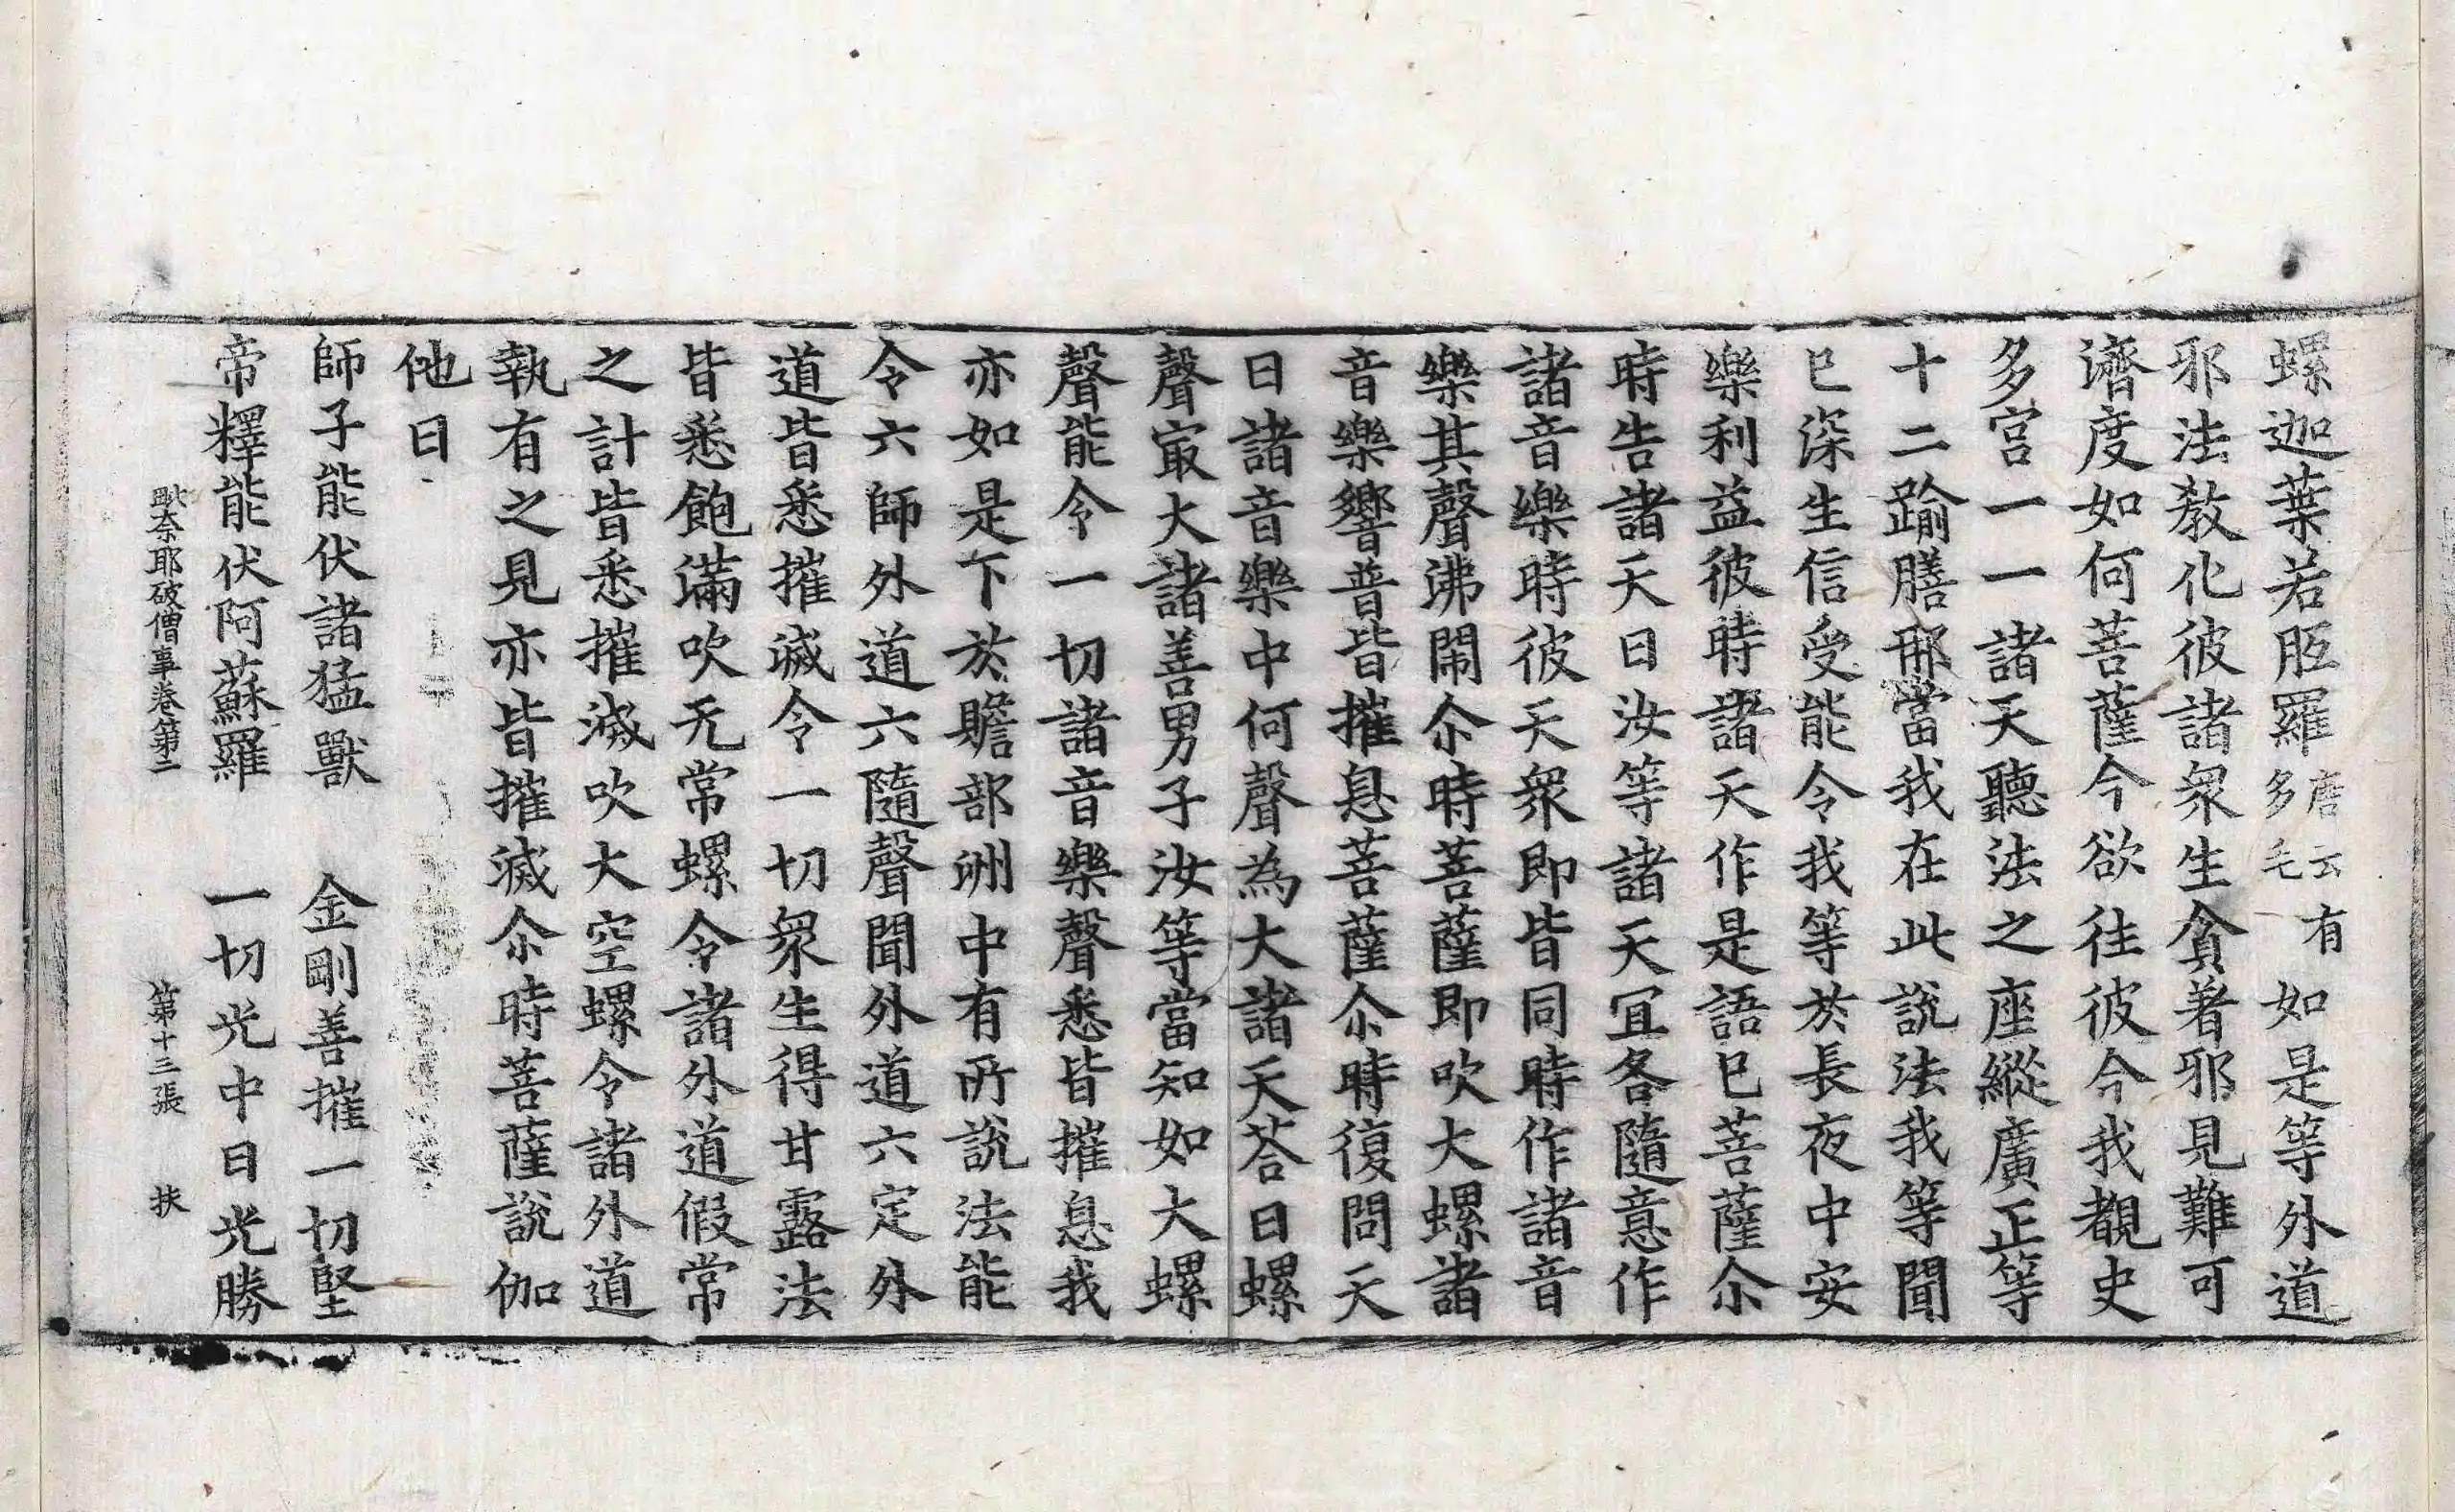 螺迦葉若胝羅唐云多毛有如是等外道
邪法教化彼諸衆生貪著邪見難可
濟度如何菩薩今欲往彼今我覩史
多宮一一諸天聽法之座縱廣正等
十二踰膳那當我在此說法我等聞
已深生信受能令我等於長夜中安
樂利益彼時諸天作是語已菩薩尒
時告諸天曰汝等諸天冝各隨意作
諸音樂時彼天衆即皆同時作諸音
樂其聲沸閙尒時菩薩即吹大螺諸
音樂響普皆摧息菩薩尒時復問天
曰諸音樂中何聲為大諸天荅曰螺
聲㝡大諸善男子汝等當知如大螺
聲能令一切諸音樂聲悉皆摧息我
亦如是下於贍部洲中有所說法能
令六師外道六隨聲聞外道六定外
道皆悉摧滅令一切衆生得甘露法
皆悉飽滿吹无常螺令諸外道假常
之計皆悉摧滅吹大空螺令諸外道
執有之見亦皆摧滅尒時菩薩說伽
他曰
師子能伏諸猛獸　金剛善摧一切堅
帝釋能伏阿蘇羅　一切光中日光勝
毗奈耶破僧事卷第二　第十三張　扶